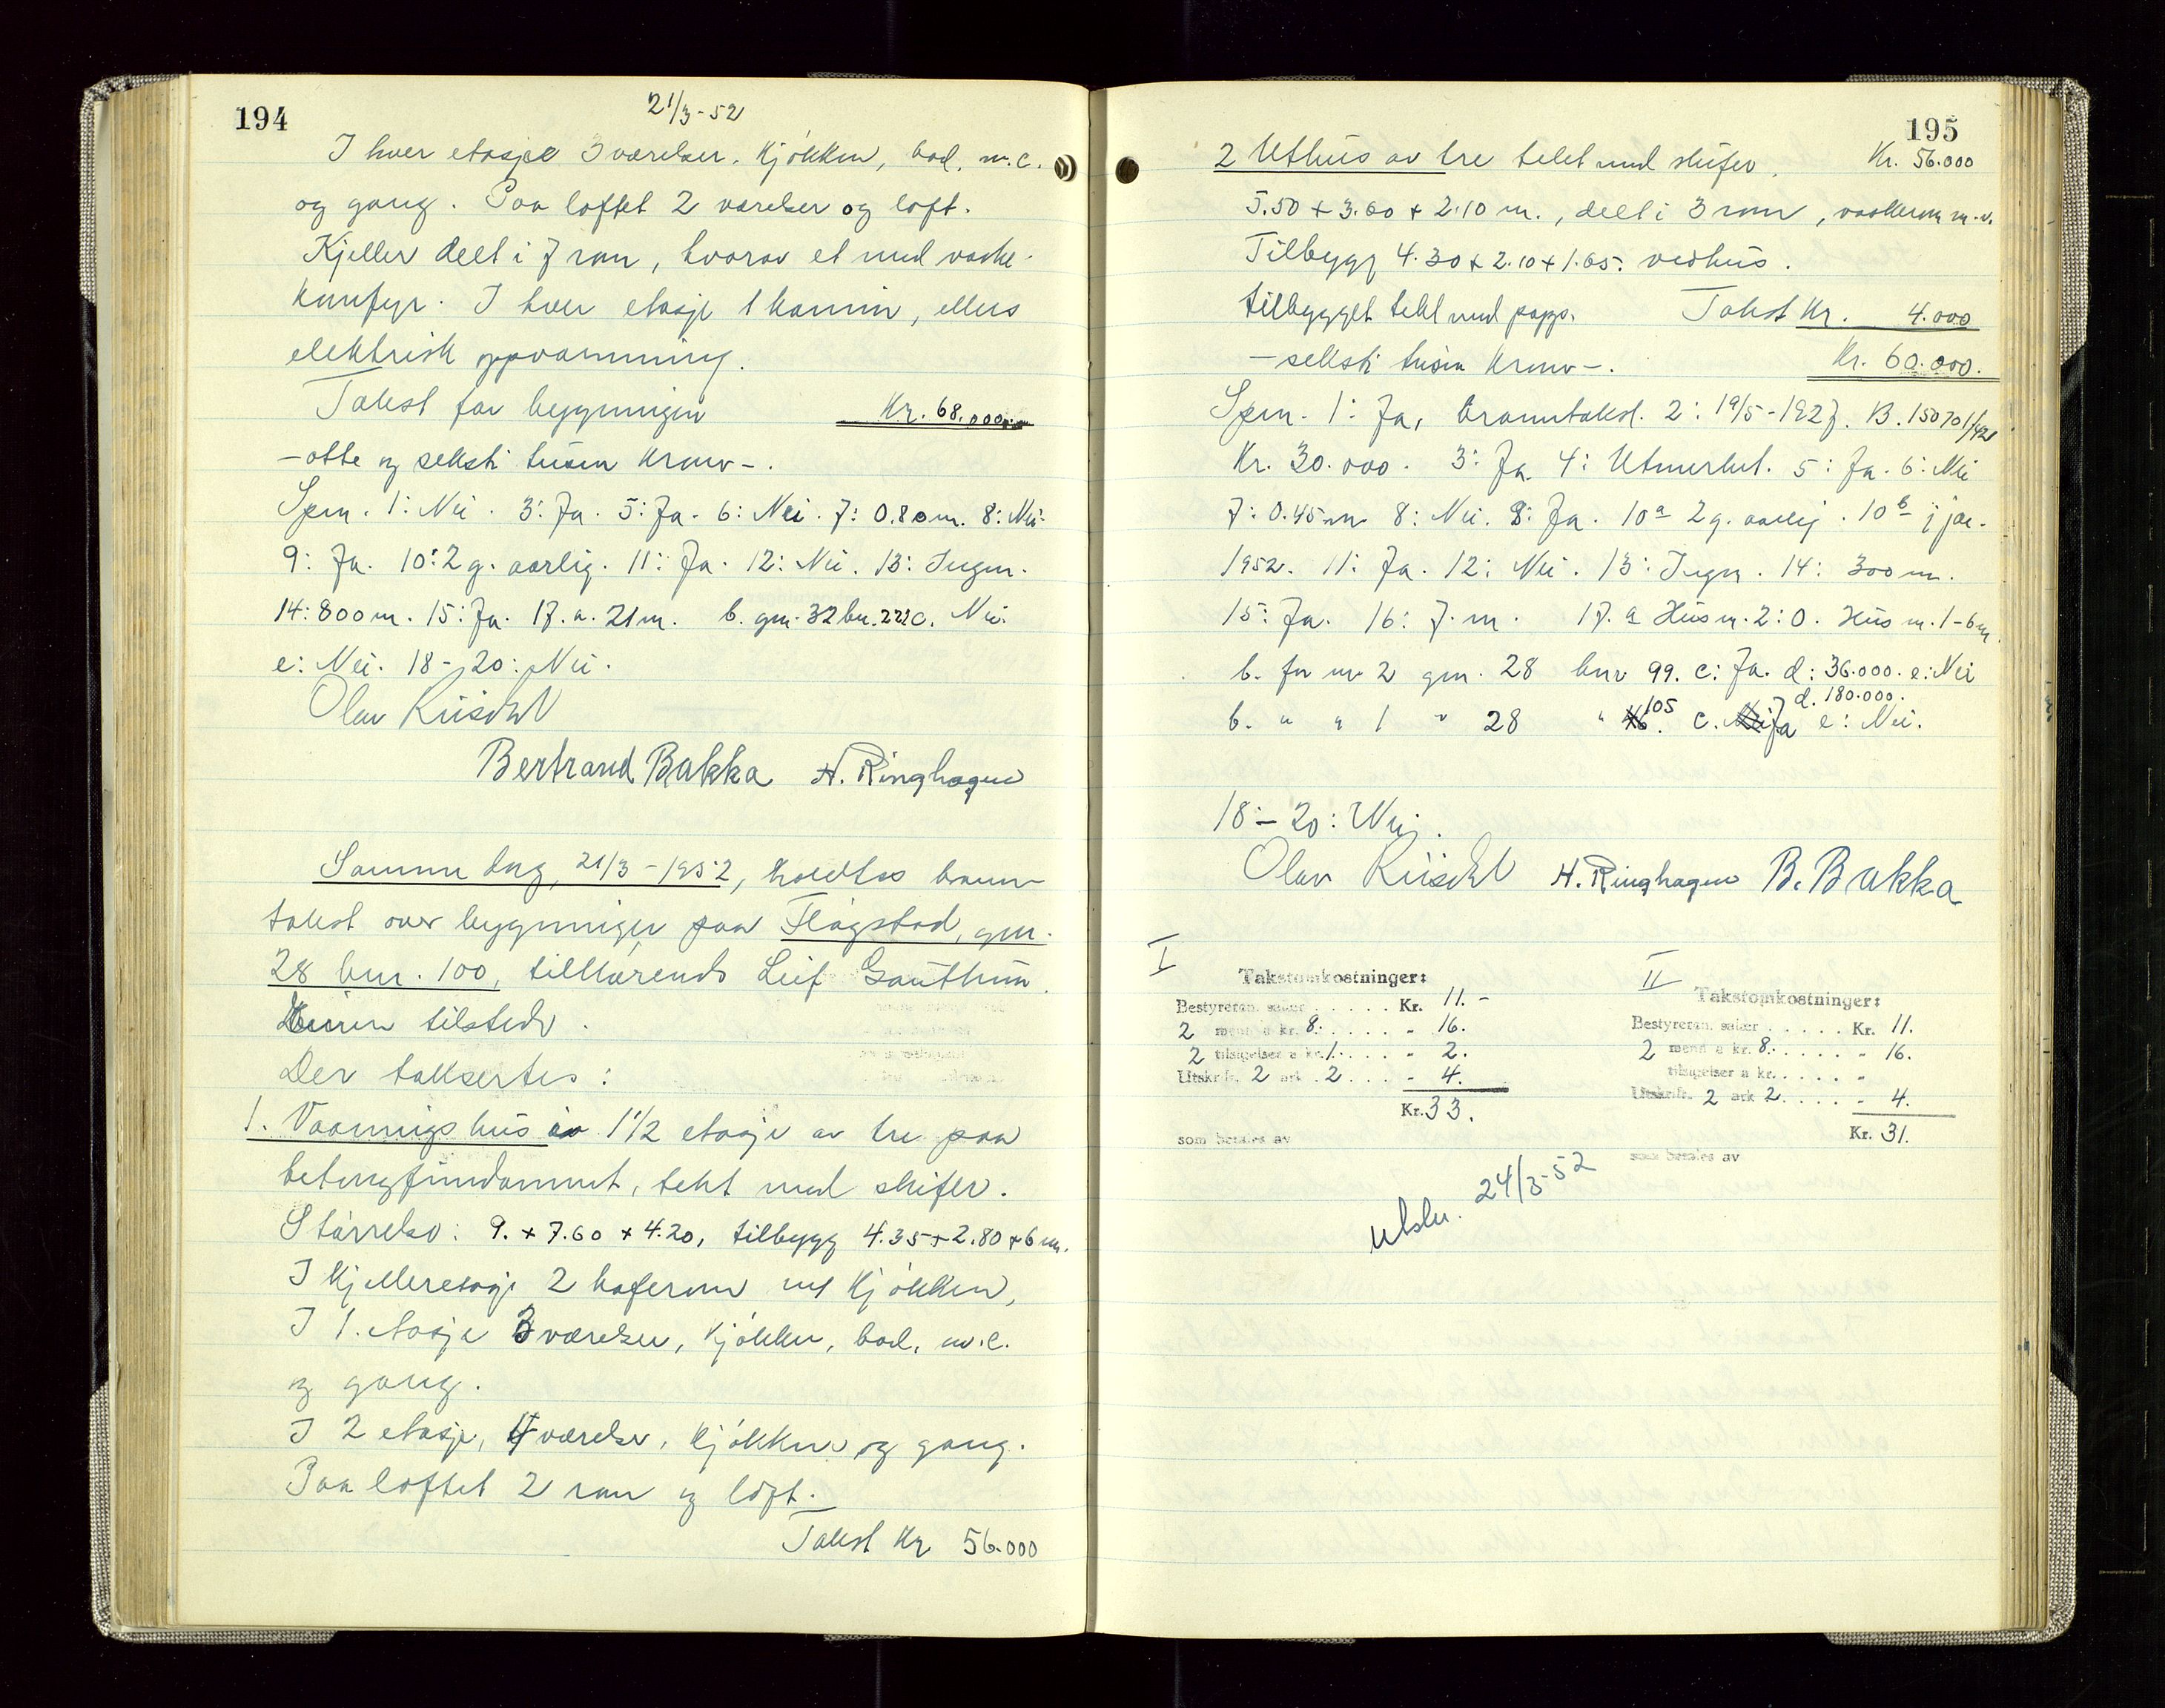 194
21/3-52
I hver etasje 3 værelser. Kjøkken, bad. w.c.
og gang. Paa loftet 2 værelser og loft.
Kjeller delt i 7 rom, hvorav et med vaske-
komfyr. I hver etasje 1 kamin, ellers
elektrisk oppvarmning.
Takst for bygningen Kr. 68.000.-
-otte og seksti tusen kroner-.
Spm. 1: Nei. 3: Ja. 5: Ja. 6: Nei. 7: 0.80m. 8: Nei.
9: Ja. 10: 2 g. aarlig. 11: Ja. 12: Nei. 13: Ingen.
14: 800 m. 15: Ja. 17. a. 21 m. b. gm. 32 bn. 222 c. Nei.
e: Nei. 18-20: Nei.
Olav
Bertrand Bakka H. Ringhagen
Samme dag, 21/3-1952, holdtes brann-
takst over bygninger paa Flagstad, gnr.
28 bnr. 100, tilhørende Leif Gauthun.
Eieren tilstede.
Der taksertes:
1. Vaaningshus av 1 1/2 etasje av tre paa
betongfundament, tekt med skifer.
Størrelse: 9. + 7.60 + 4.20, tilbygg 4.35 + 2.80 + 6 m.
I kjelleretasje 2 kaferom m/ kjøkken,
I 1. etasje 3 værelser, kjøkken, bad, w.c.
og gang.
I 2 etasje, 4 værelser, kjøkken og gang.
Paa loftet 2 rom og loft.
Takst Kr 56.000
195
2 Uthus av tre tekt med skifer. Kr. 56.000
5.50 + 3.60 + 2.10 m., delt i 3 rom, vaskerom m.v.
Tilbygg 4.30 + 2.10 + 1.65. vedhus.
tilbygget tekt med papp. Takst Kr. 4.000
-seksti tusen kroner-. Kr. 60.000.
Spm. 1: Ja, branntakst. 2: 19/5-1927. B. 150701/42
Kr. 30.000. 3: Ja. 4: Utmerket. 5: Ja. 6: Nei
7: 0.45 m 8: Nei. 9: Ja. 10a 2 g. aarlig. 10b i jan.
1952. 11: Ja. 12: Nei. 13: Ingen. 14: 300 m.
15: Ja. 16: 7. m. 17. a Hus nr. 2: 0. Hus nr. 1-6 m.
b. for nr 2 gnr. 28 bnr 99. c: Ja. d: 36.000. e: Nei
b. " " 1 " 28 " 105 c. Ja d. 180.000. e: Nei.
18-20: Nei.
Olav H. Ringhagen B. Bakka
I
Takstomkostninger:
Bestyreren. salær . . . . . Kr. 11.-
2 menn a kr. 8. . . . . - 16.
2 tilsigelser a kr. 1. . . . . - 2.
Utskrift. 2 ark . 2 . . . . - 4.
Kr. 33.
som betales av
II
Takstomkostninger:
Bestyreren. salær . . . . . Kr. 11.
2 menn a kr. 8. . . . . - 16.
tilsigelser a kr. . . . . -
Utskrift. 2 ark 2 . . . . - 4.
Kr. 31.
som betales av
utskr. 24/3-52